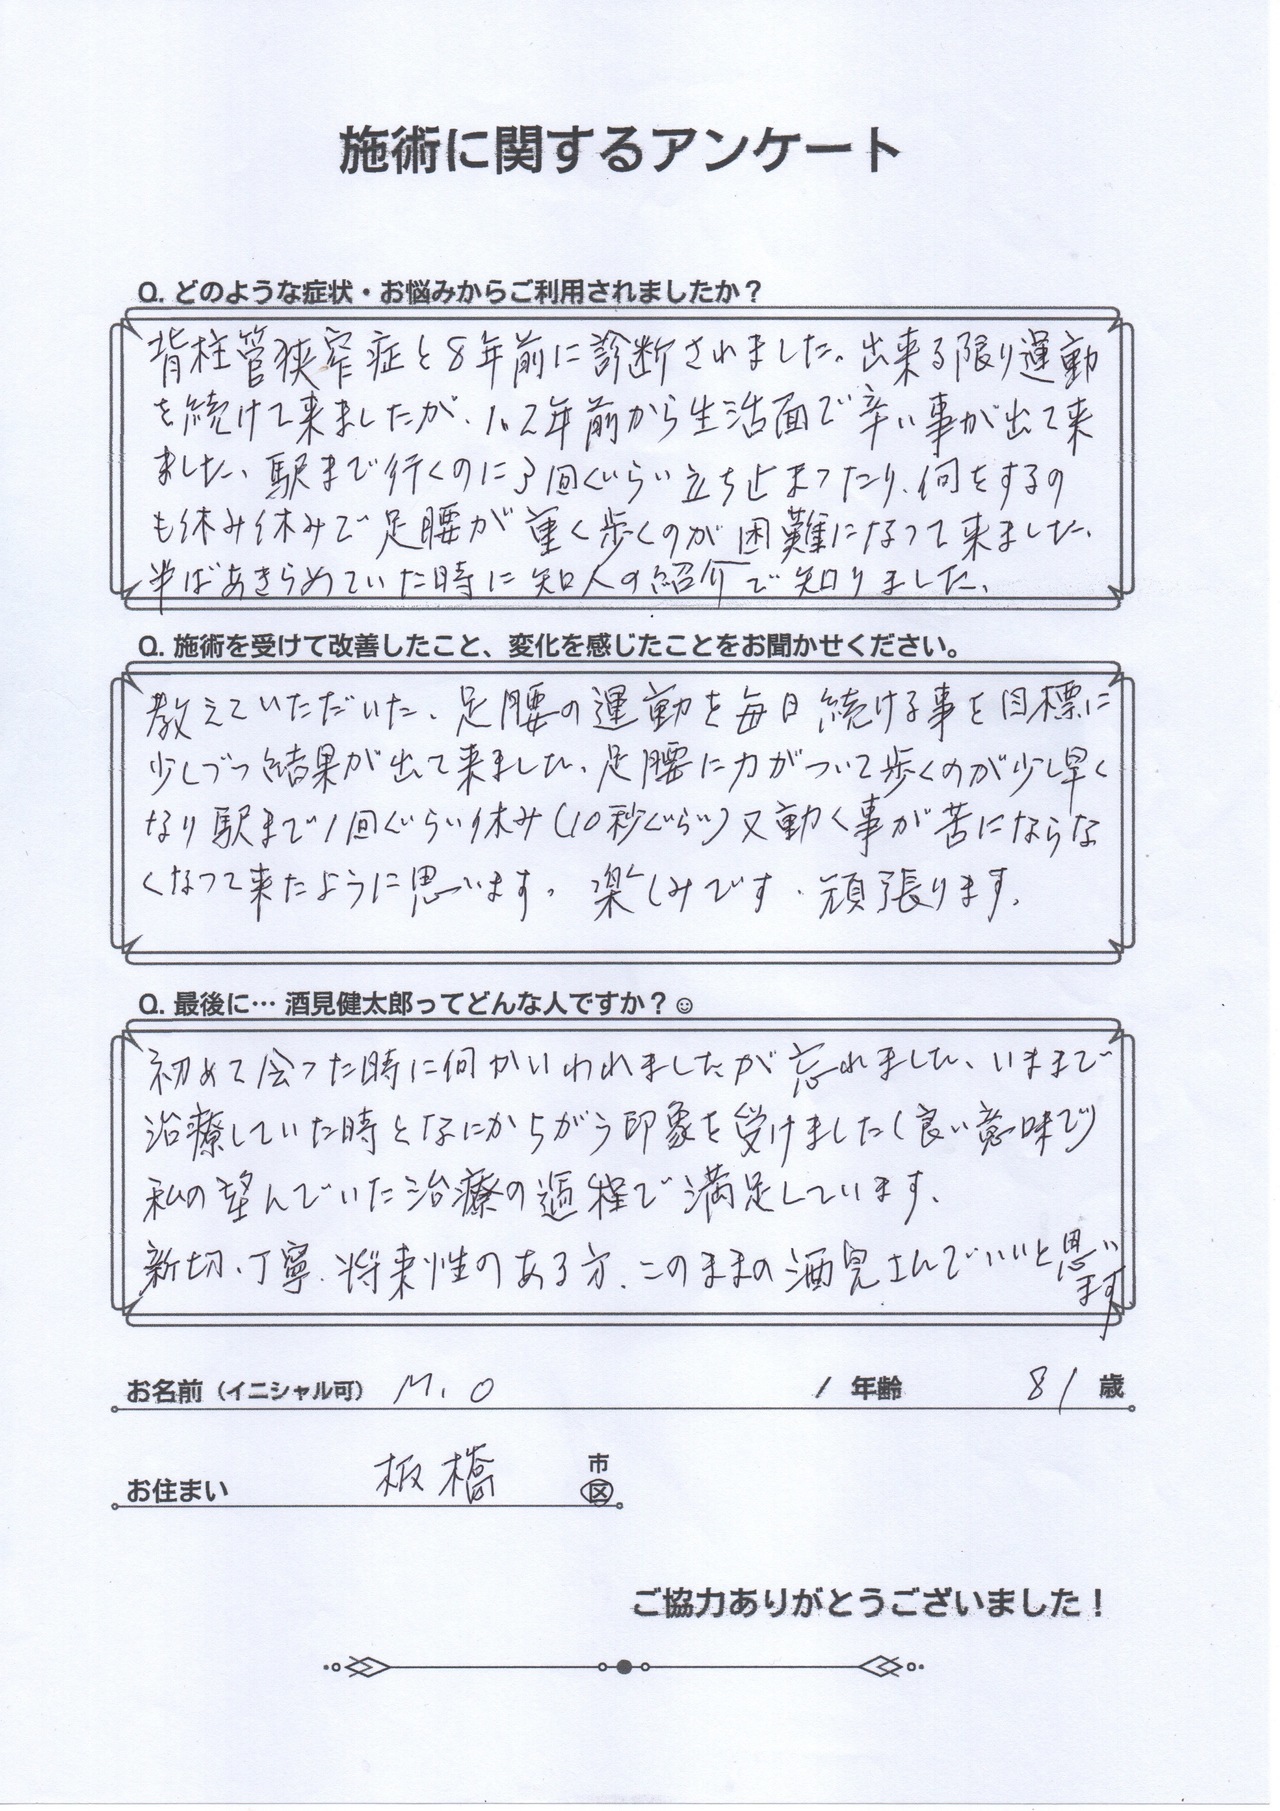 施術に関するアンケート
Q. どのような症状・お悩みからご利用されましたか？
背柱管狭窄症と8年前に診断されました。出来る限り運動
を続けて来ましたが、1.2年前から生活面で辛い事が出て来
ました、駅まで行くのに3回ぐらい立ち止まったり、何をするの
も休み休みで足腰が重く歩くのが困難になって来ました、
半ばあきらめていた時に知人の紹介で知りました、
Q. 施術を受けて改善したこと、変化を感じたことをお聞かせください。
教えていただいた、足腰の運動を毎日続ける事を目標に
少しづつ結果が出て来ました、足腰に力がついて歩くのが少し早く
なり駅まで1回ぐらい休み(10秒ぐらい)又動く事が苦にならな
くなって来たように思います。楽しみです、頑張ります、
Q. 最後に… 酒見健太郎ってどんな人ですか？☺
初めて会った時に何かいわれましたが忘れました、いままで
治療していた時となにかちがう印象を受けました(良い意味で)
私の望んでいた治療の過程で満足しています、
新切、丁寧、将来性のある方、このままの酒見さんでいいと思い
ます
お名前（イニシャル可） M.O / 年齢 81 歳
お住まい 板橋 市
区
ご協力ありがとうございました！